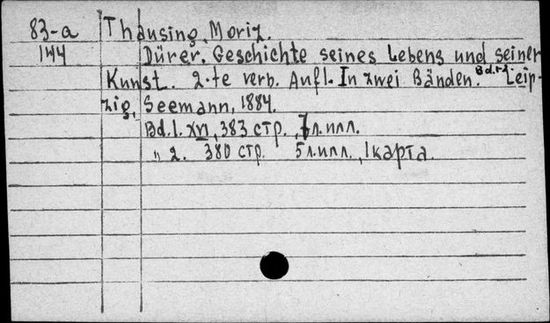 83-a Thausing, Moriz.
144 Dürer. Geschichte seines Lebens und seiner
Kunst. 2-te verb. Aufl. In zwei Bänden. Bd.1-2 Leip-
zig, Seemann, 1884.
Bd.1. XVI, 383 стр., 7 л. илл.
" 2. 380 стр. 5 л. илл., 1 карта.